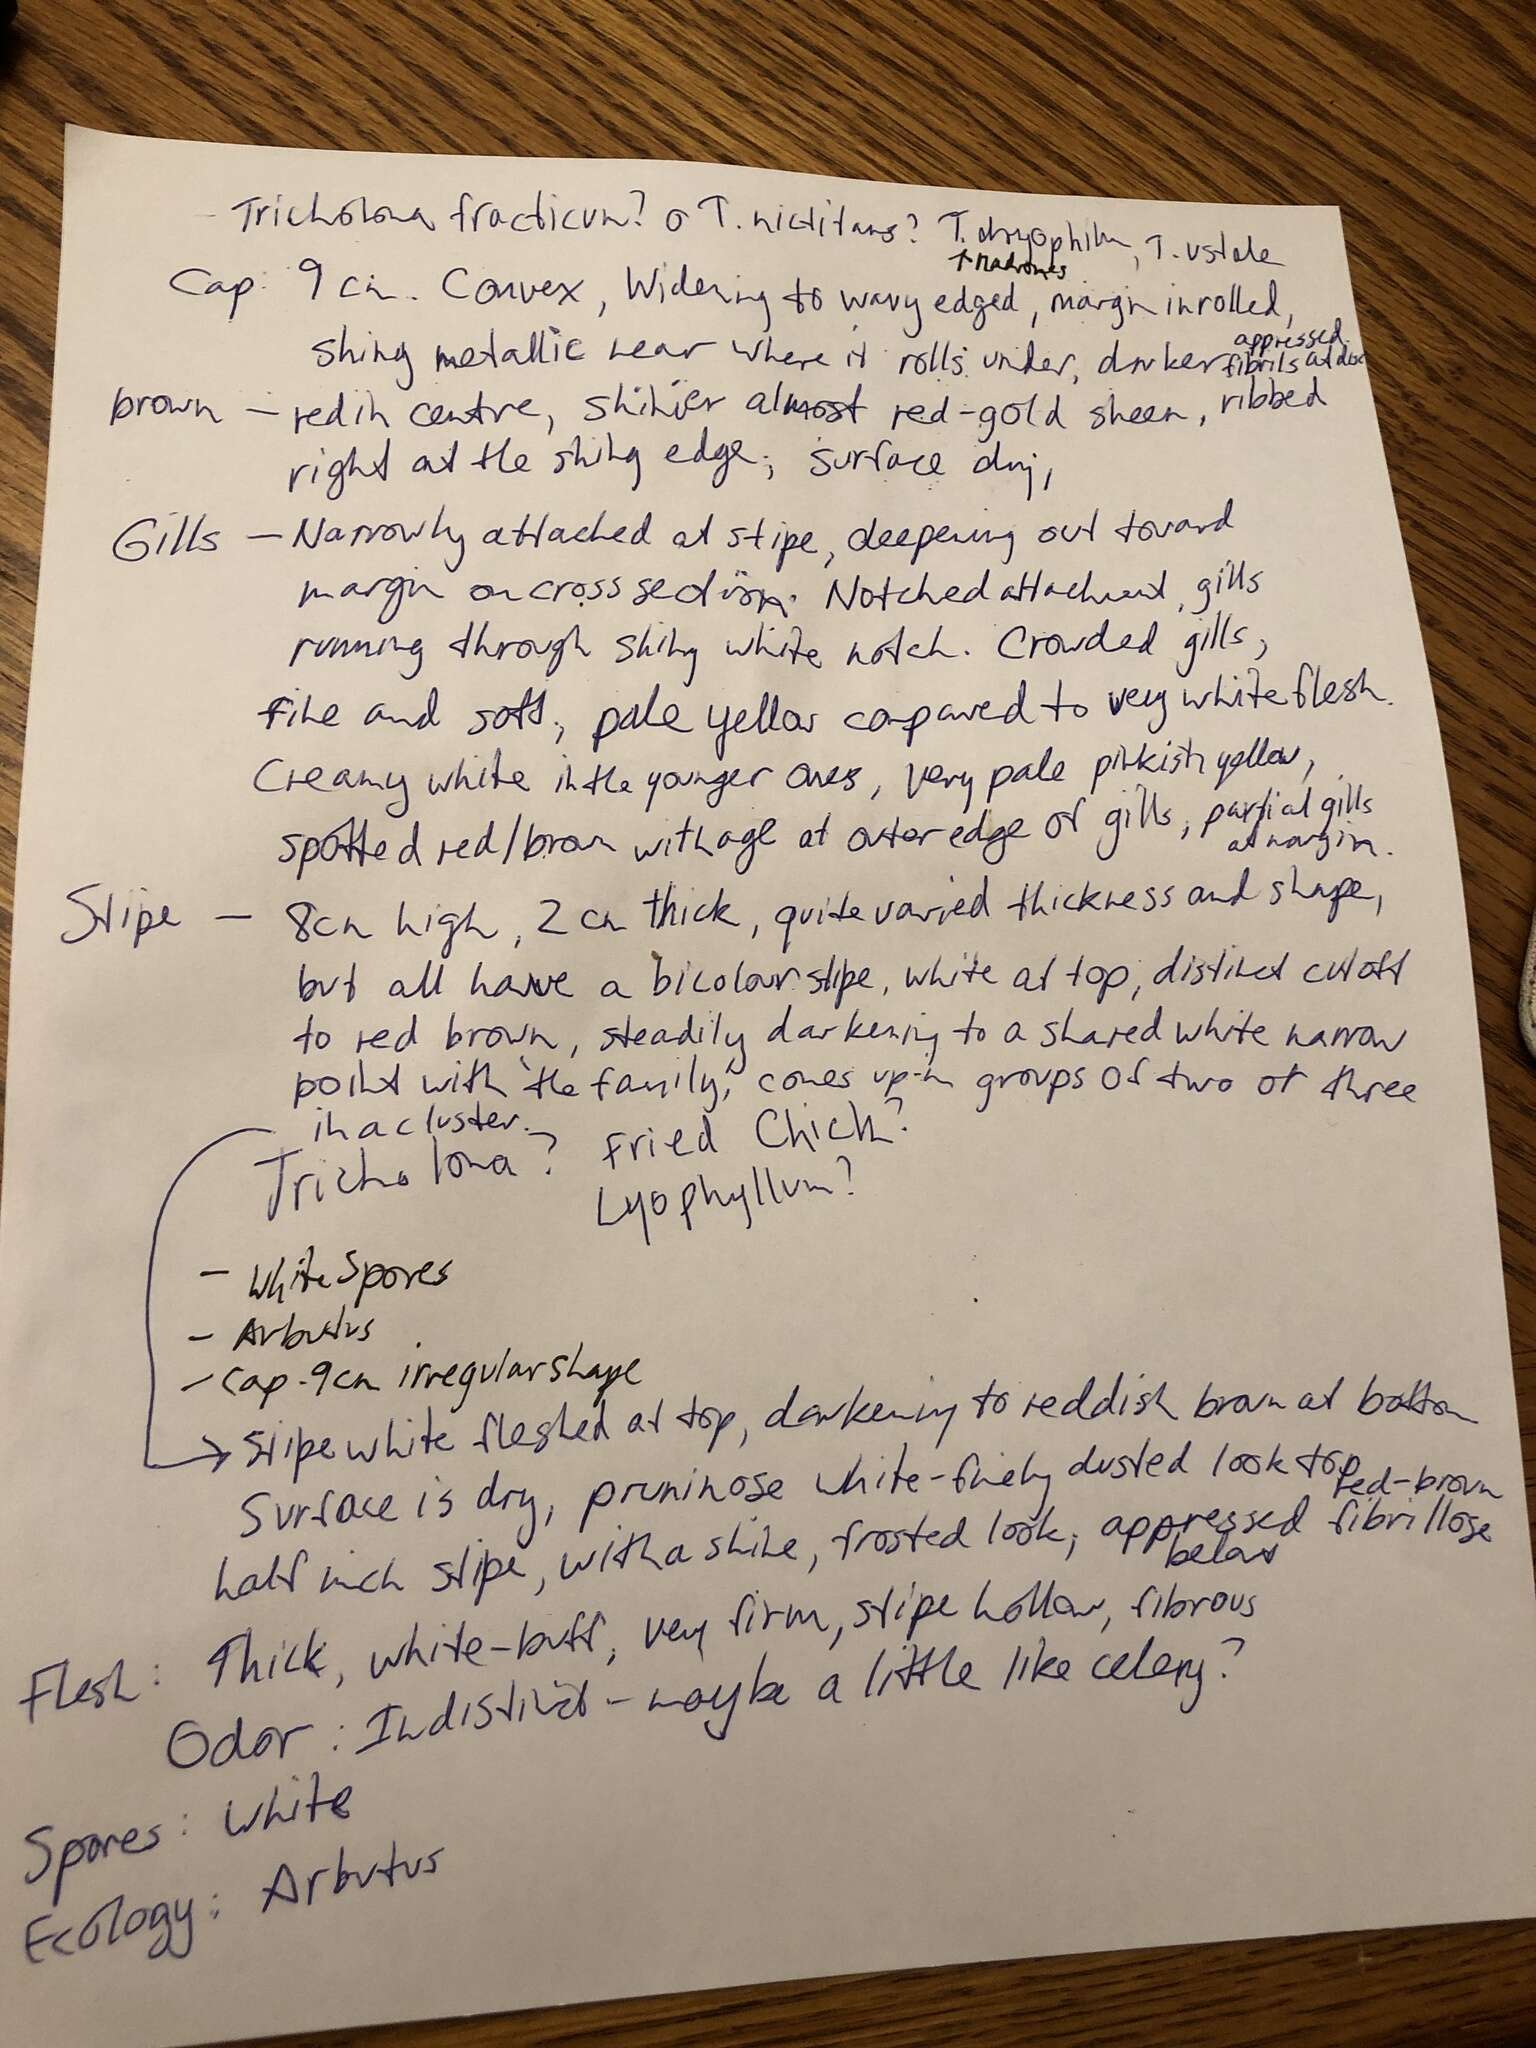 - Tricholoma fracticum? o T. nictitans? T. dryophilum, T. ustale
↑ Madrones
Cap: 9 cm. Convex, Widening to wavy edged, margin inrolled,
shiny metallic near where it rolls under, darker appressed fibrils at disc
brown - red in centre, shinier almost red-gold sheen, ribbed
right at the shiny edge; surface dry,
Gills - Narrowly attached at stipe, deepening out toward
margin on cross section. Notched attachment, gills
running through shiny white notch. Crowded gills,
fine and soft, pale yellow compared to very white flesh.
Creamy white in the younger ones, very pale pinkish yellow,
spotted red/brown with age at outer edge of gills, partial gills at margin.
Stipe - 8cm high, 2 cm thick, quite varied thickness and shape,
but all have a bicolour stipe, white at top, distinct cutoff
to red brown, steadily darkening to a shared white narrow
point with "the family," comes up in groups of two or three
in a cluster.
Tricholoma? Fried Chick?
Lyophyllum?
- White Spores
- Arbutus
- Cap - 9cm irregular shape
→ Stipe white fleshed at top, darkening to reddish brown at bottom
Surface is dry, pruninose white - finely dusted look top
half inch stipe, with a shine, frosted look, appressed red-brown fibrillose below
Flesh: Thick, white-buff, very firm, stipe hollow, fibrous
Odor: Indistinct - maybe a little like celery?
Spores: White
Ecology: Arbutus